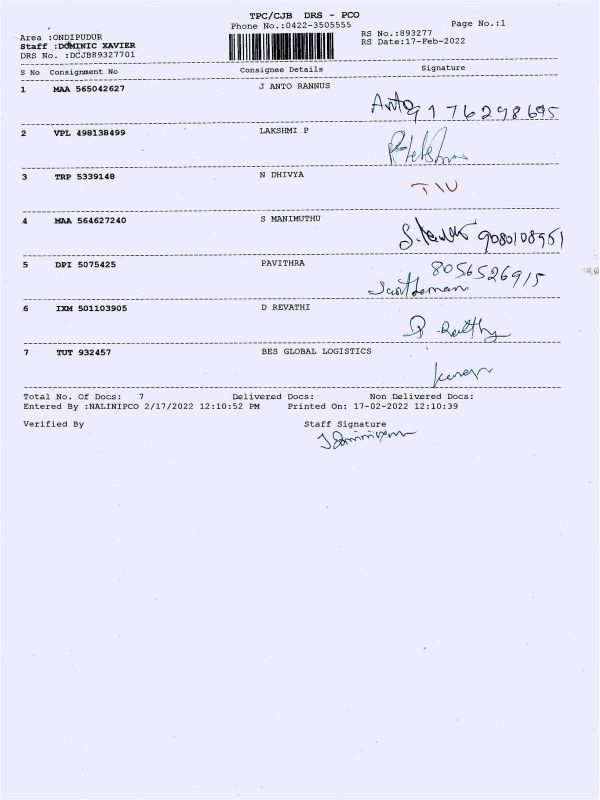 TPC/CJB DRS - PCO
Phone No.:0422-3505555
Page No.:1
RS No.:893277
RS Date:17-Feb-2022
Area :ONDIPUDUR
Staff :DOMINIC XAVIER
DRS No. :DCJB89327701
S No Consignment No Consignee Details Signature
1 MAA 565042627 J ANTO RANNUS
Anto 9176298695
2 VPL 498138499 LAKSHMI P
3 TRP 5339148 N DHIVYA
4 MAA 564627240 S MANIMUTHU
9080108951
5 DPI 5075425 PAVITHRA
8056526915
6 IXM 501103905 D REVATHI
7 TUT 932457 BES GLOBAL LOGISTICS
Total No. Of Docs: 7 Delivered Docs: Non Delivered Docs:
Entered By :NALINIPCO 2/17/2022 12:10:52 PM Printed On: 17-02-2022 12:10:39
Verified By Staff Signature